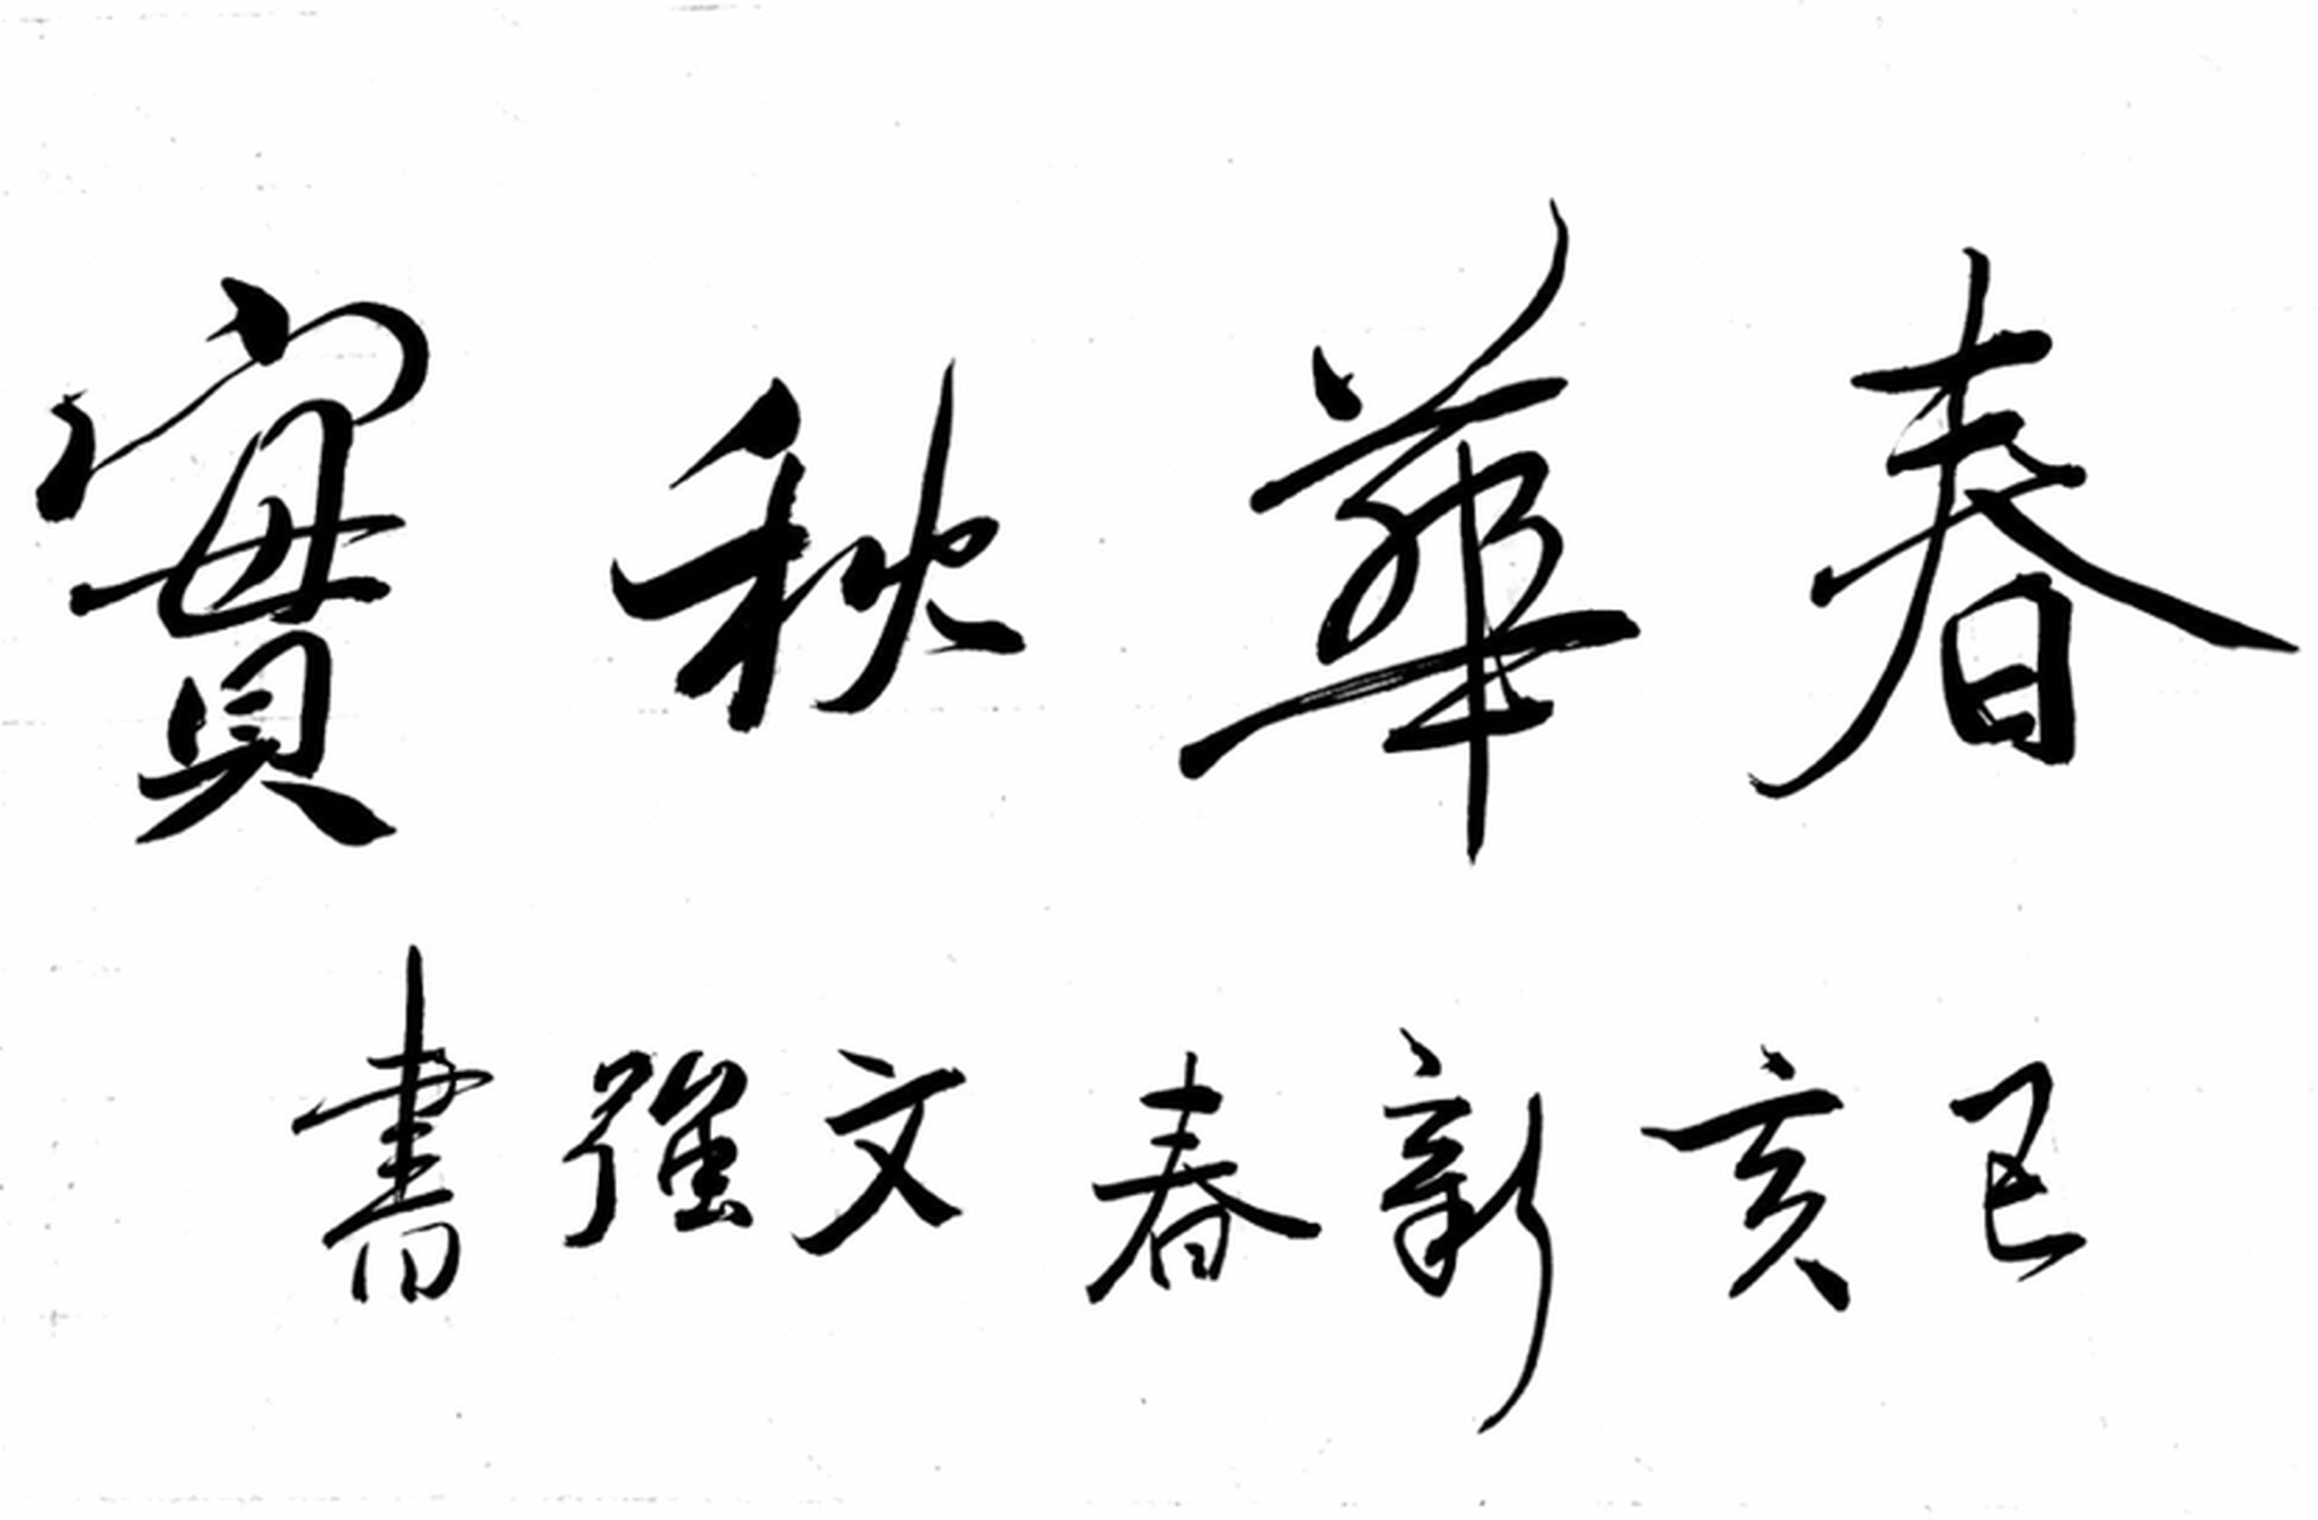 春華秋實
己亥新春文強書